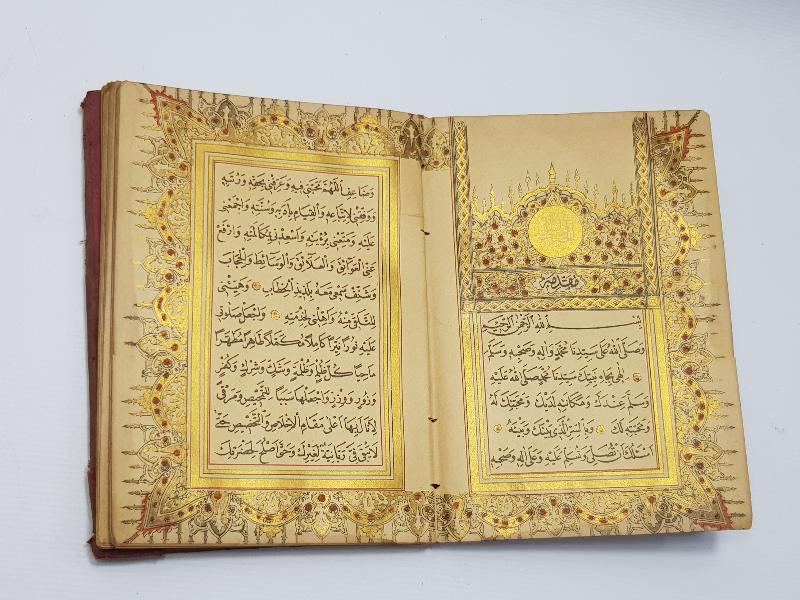 مقدمة
بسم الله الرحمن الرحيم
وَصَلَّى اللهُ عَلَى سَيِّدِنَا مُحَمَّدٍ وَاٰلِهِ وَصَحْبِهِ وَسَلَّمَ
اِلٰهِي بِجَاهِ نَبِيِّكَ سَيِّدِنَا مُحَمَّدٍ صَلَّى اللهُ عَلَيْهِ
وَسَلَّمَ عِنْدَكَ وَمَكَانَتِهِ لَدَيْكَ وَمَحَبَّتِكَ لَهُ
وَمَحَبَّتِهِ لَكَ وَبِالسِّرِّ الَّذِي بَيْنَكَ وَبَيْنَهُ
اَسْئَلُكَ اَنْ تُصَلِّيَ وَتُسَلِّمَ عَلَيْهِ وَعَلَى اٰلِهِ وَصَحْبِهِ
وَضَاعِفِ اللّٰهُمَّ مَحَبَّتِي فِيهِ وَعَرِّفْنِي بِحَقِّهِ وَرُتَبِهِ
وَوَفِّقْنِي لِاتِّبَاعِهِ وَالْقِيَامِ بِاَدَبِهِ وَسُنَّتِهِ وَاجْمَعْنِي
عَلَيْهِ وَمَتِّعْنِي بِرُؤْيَتِهِ وَاَسْعِدْنِي بِمُكَالَمَتِهِ وَارْفَعْ
عَنِّي الْعَوَائِقَ وَالْعَلَائِقَ وَالْوَسَائِطَ وَالْحِجَابَ
وَشَنِّفْ سَمْعِي مَعَهُ بِلَذِيذِ الْخِطَابِ وَهَيِّئْنِي
لِلتَّلَقِّي مِنْهُ وَاَهِّلْنِي لِخِدْمَتِهِ وَاجْعَلْ صَلَوتِي
عَلَيْهِ نُورًا نَيِّرًا كَامِلًا مُكَمَّلًا طَاهِرًا مُطَهَّرًا
مَاحِيًا كُلَّ ظُلْمٍ وَظُلْمَةٍ وَشَكٍّ وَشِرْكٍ وَكُفْرٍ
وَزُورٍ وَوِزْرٍ وَاجْعَلْهَا سَبَبًا لِلتَّمْحِيصِ وَمَرْقًى
لِاَنَالَ بِهَا اَعْلَى مَقَامِ الْاِخْلَاصِ وَالتَّخْصِيصِ حَتَّى
لَا يَبْقَى فِيَّ رَبَّانِيَّةٌ لِغَيْرِكَ وَحَتَّى اَصْلُحَ لِحَضْرَتِكَ